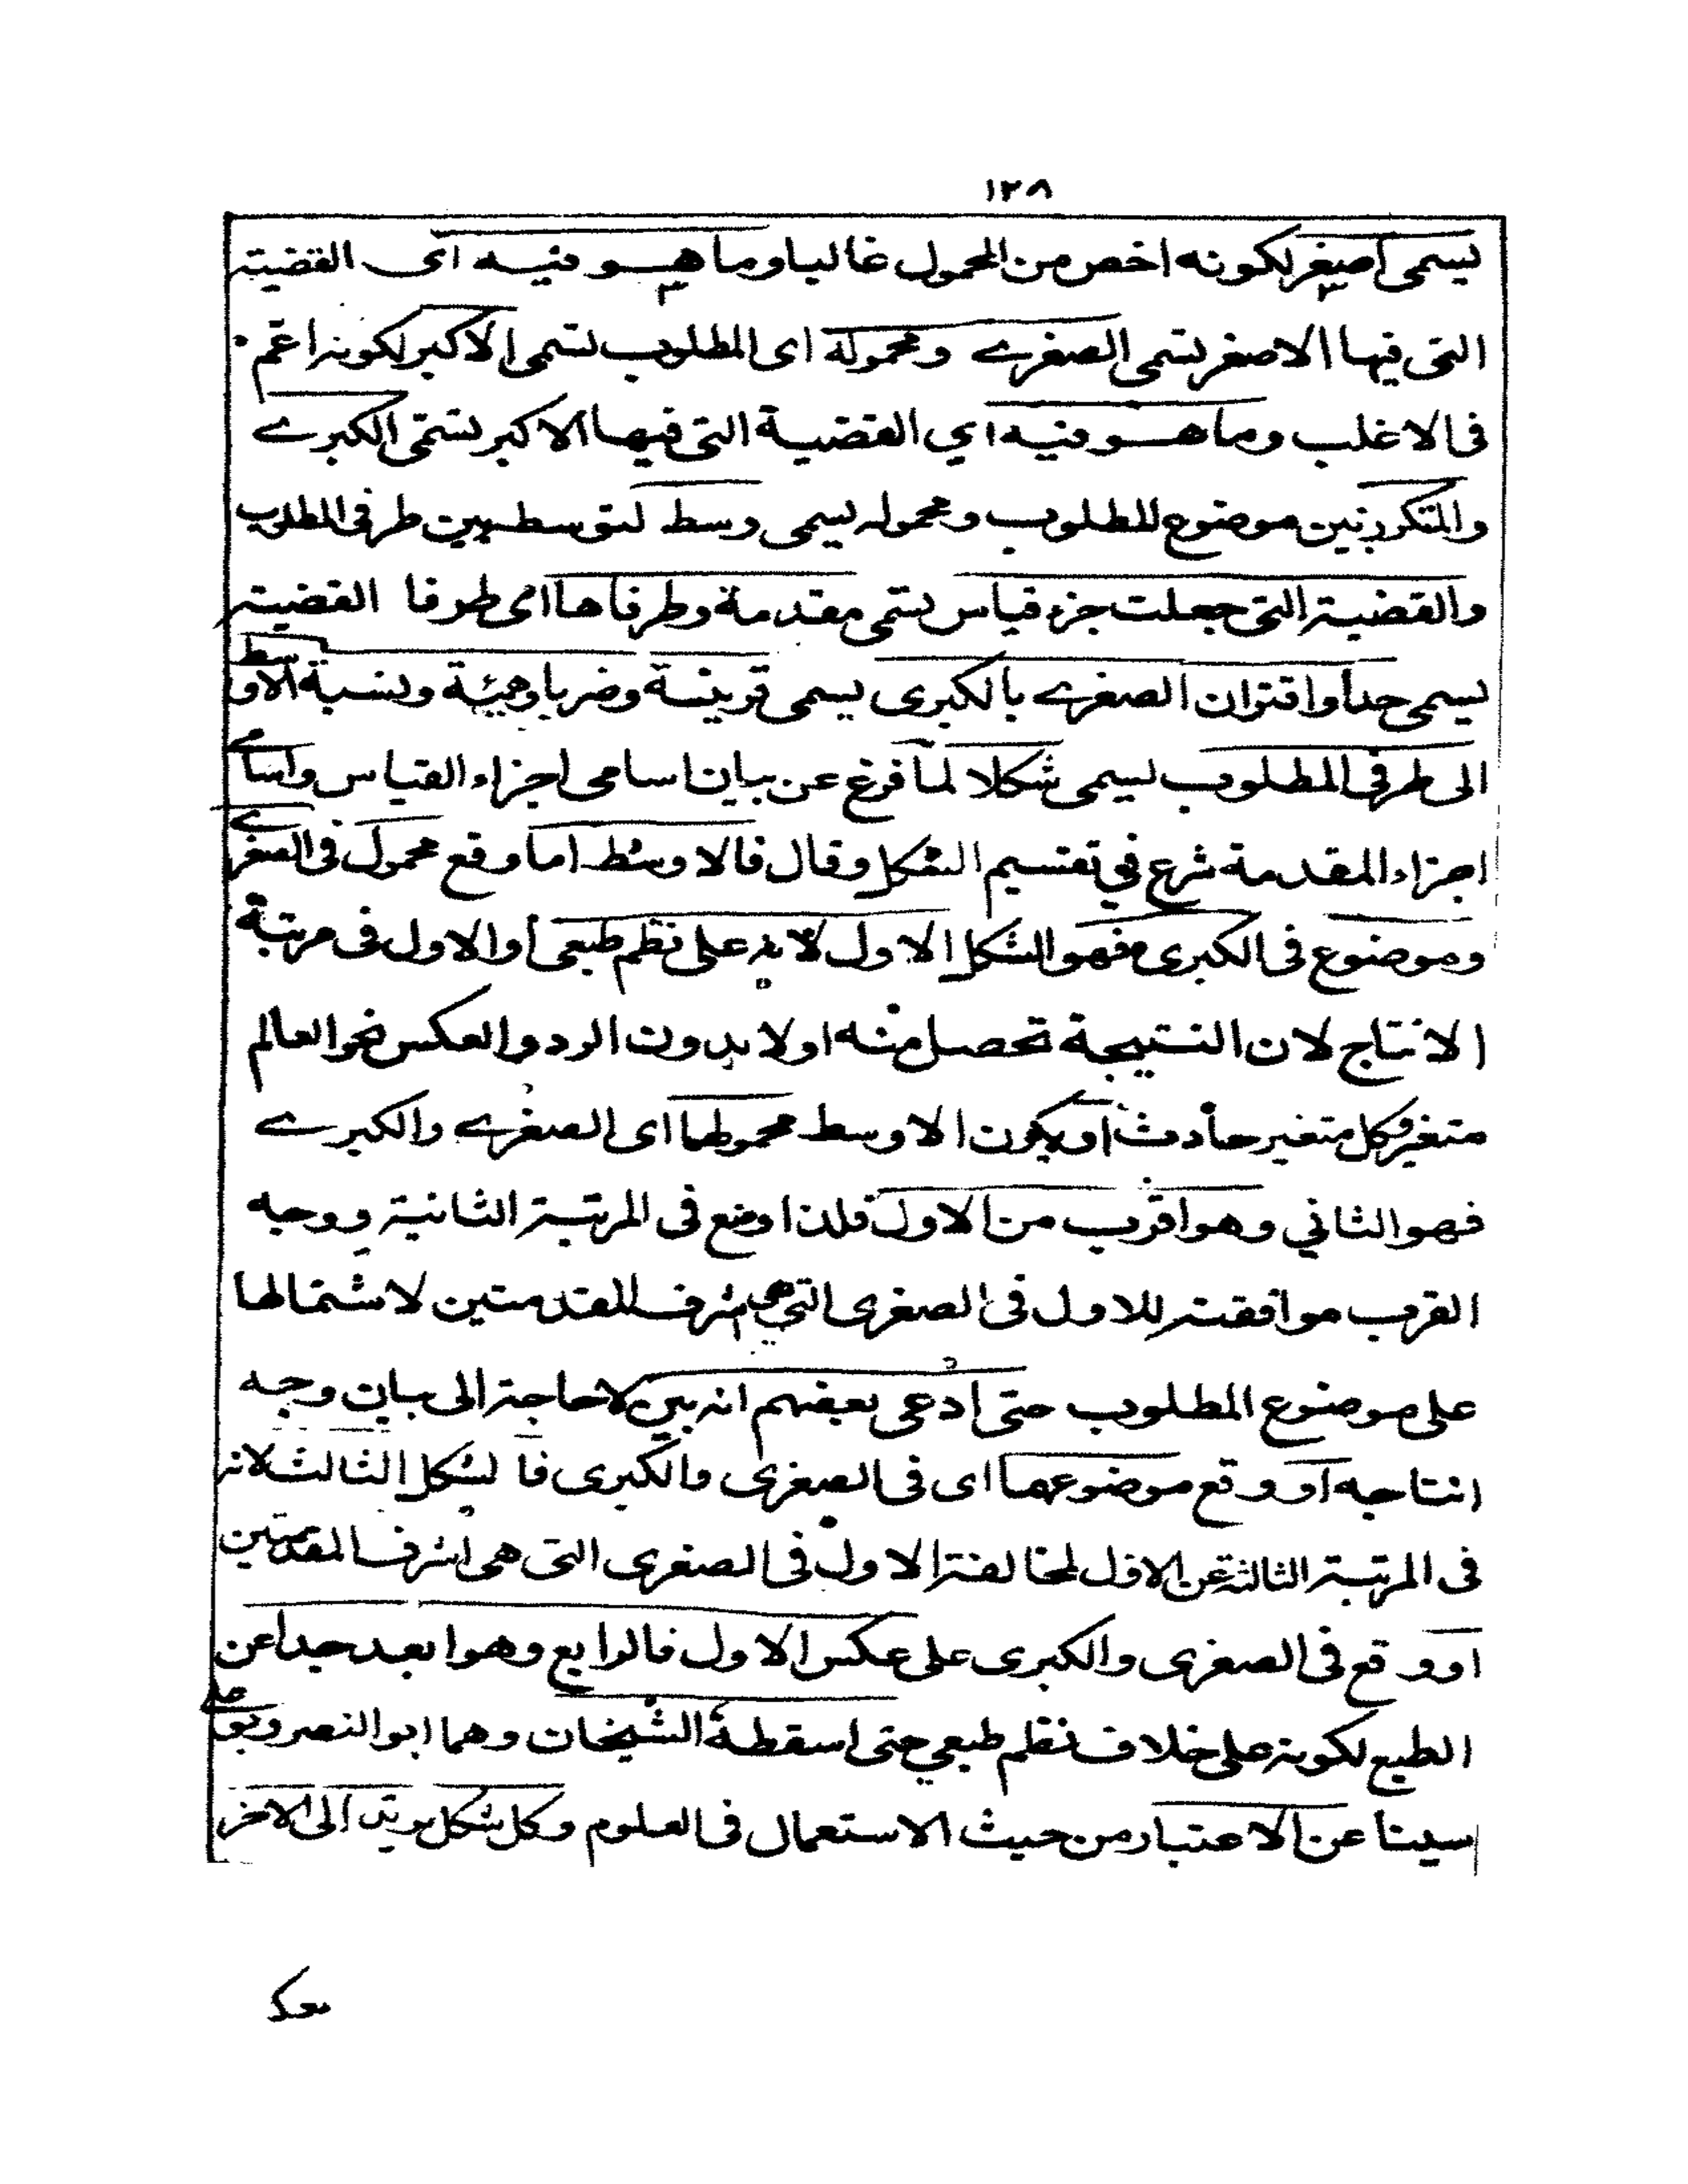 ١٢٨
يسمى اصغر لكونه اخص من المحمول غالبا وما هو فيه اى القضية
التى فيها الاصغر يسمى الصغرے ومحموله اى المطلوب تسمى الاكبر لكونه اعم
فى الاغلب وما هو فيه اي القضية التى فيها الاكبر تسمّى الكبرے
والمتكرر بين موضوع المطلوب ومحموله يسمى وسط لتوسطه بين طرفى المطلوب
والقضية التى جعلت جزء قياس تسمى مقدمة وطرفاها اى طرفا القضية
يسمى حدا واقتران الصغرے بالكبرى يسمى قرينة وضربا وهيئة ونسبة الاوسط
الى طرفى المطلوب يسمى شكلا لما فرغ عن بيان اسامى اجزاء القياس واسامے
اجزاء المقدمة شرع في تقسيم الشكل وقال فالاوسط اما وقع محمول فى الصغرے
وموضوع فى الكبرى فهو الشكل الاول لانه على نظم طبعى أو الاول فى مرتبة
الانتاج لان النتيجة تحصل منه اولا بدون الرد والعكس نحو العالم
متغير وكل متغير حادث او يكون الاوسط محمولهما اى الصغرے والكبرے
فهو الثاني وهو اقرب من الاول فلذا وضع فى المرتبة الثانية ووجه
القرب موافقته للاول فى الصغرى التي هي اشرف المقدمتين لاشتمالها
على موضوع المطلوب حتى ادعى بعضهم انه بين لا حاجة الى بيان وجه
انتاجه او وقع موضوعهما اى فى الصغرى والكبرى فالشكل الثالث لانه
فى المرتبة الثالثة عن الاول لمخالفته الاول فى الصغرى التى هى اشرف المقدمتين
او وقع فى الصغرى والكبرى على عكس الاول فالرابع وهو ابعد جدا عن
الطبع لكونه على خلاف نظم طبعي حتى اسقطة الشيخان وهما ابو النصر وبو على
سينا عن الاعتبار من حيث الاستعمال فى العلوم وكل شكل يرتد الى الاخر
بعكس